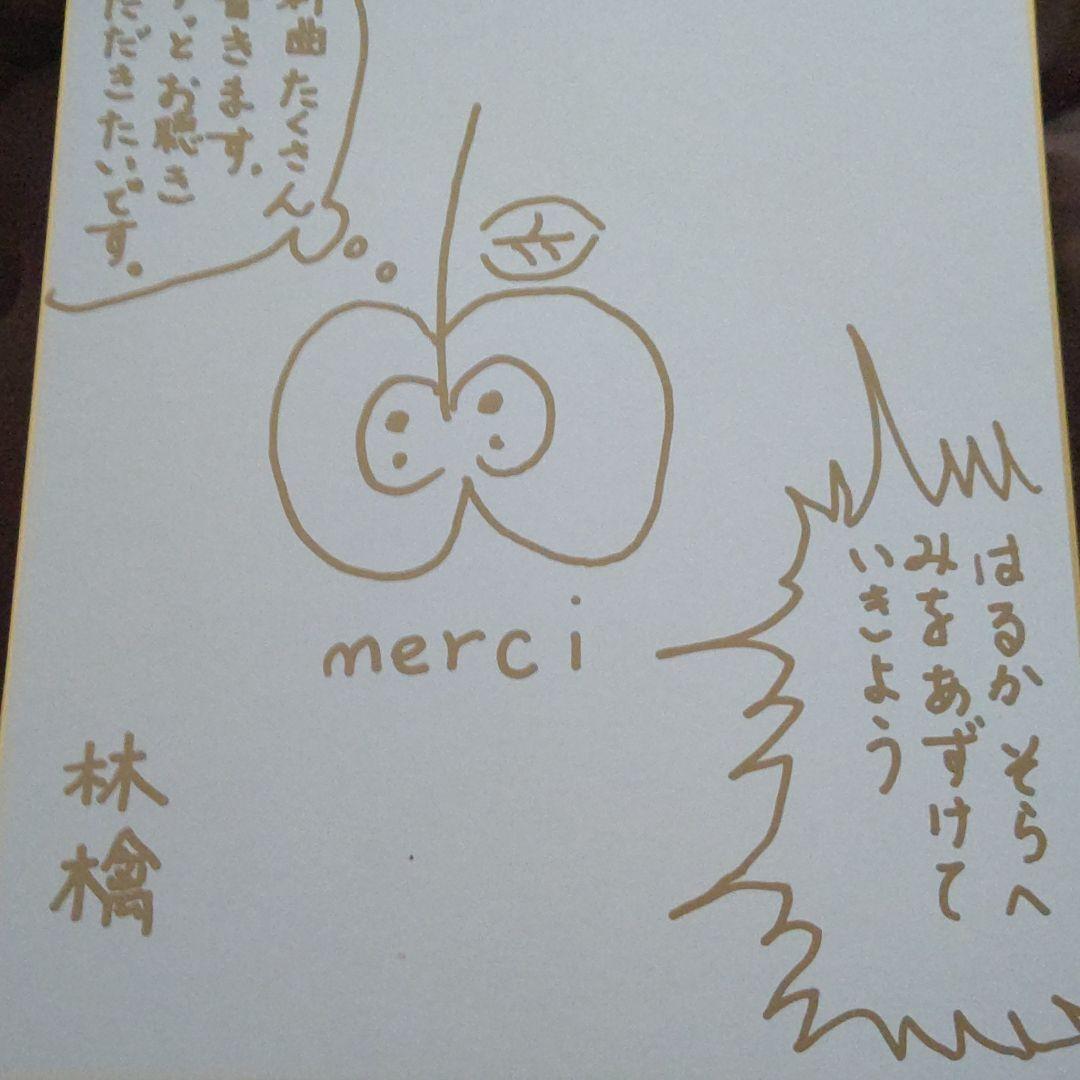 曲たくさん
書きます。
っとお聴き
ただきたいです。
merci
はるか そらへ
みをあずけて
いきよう
林檎